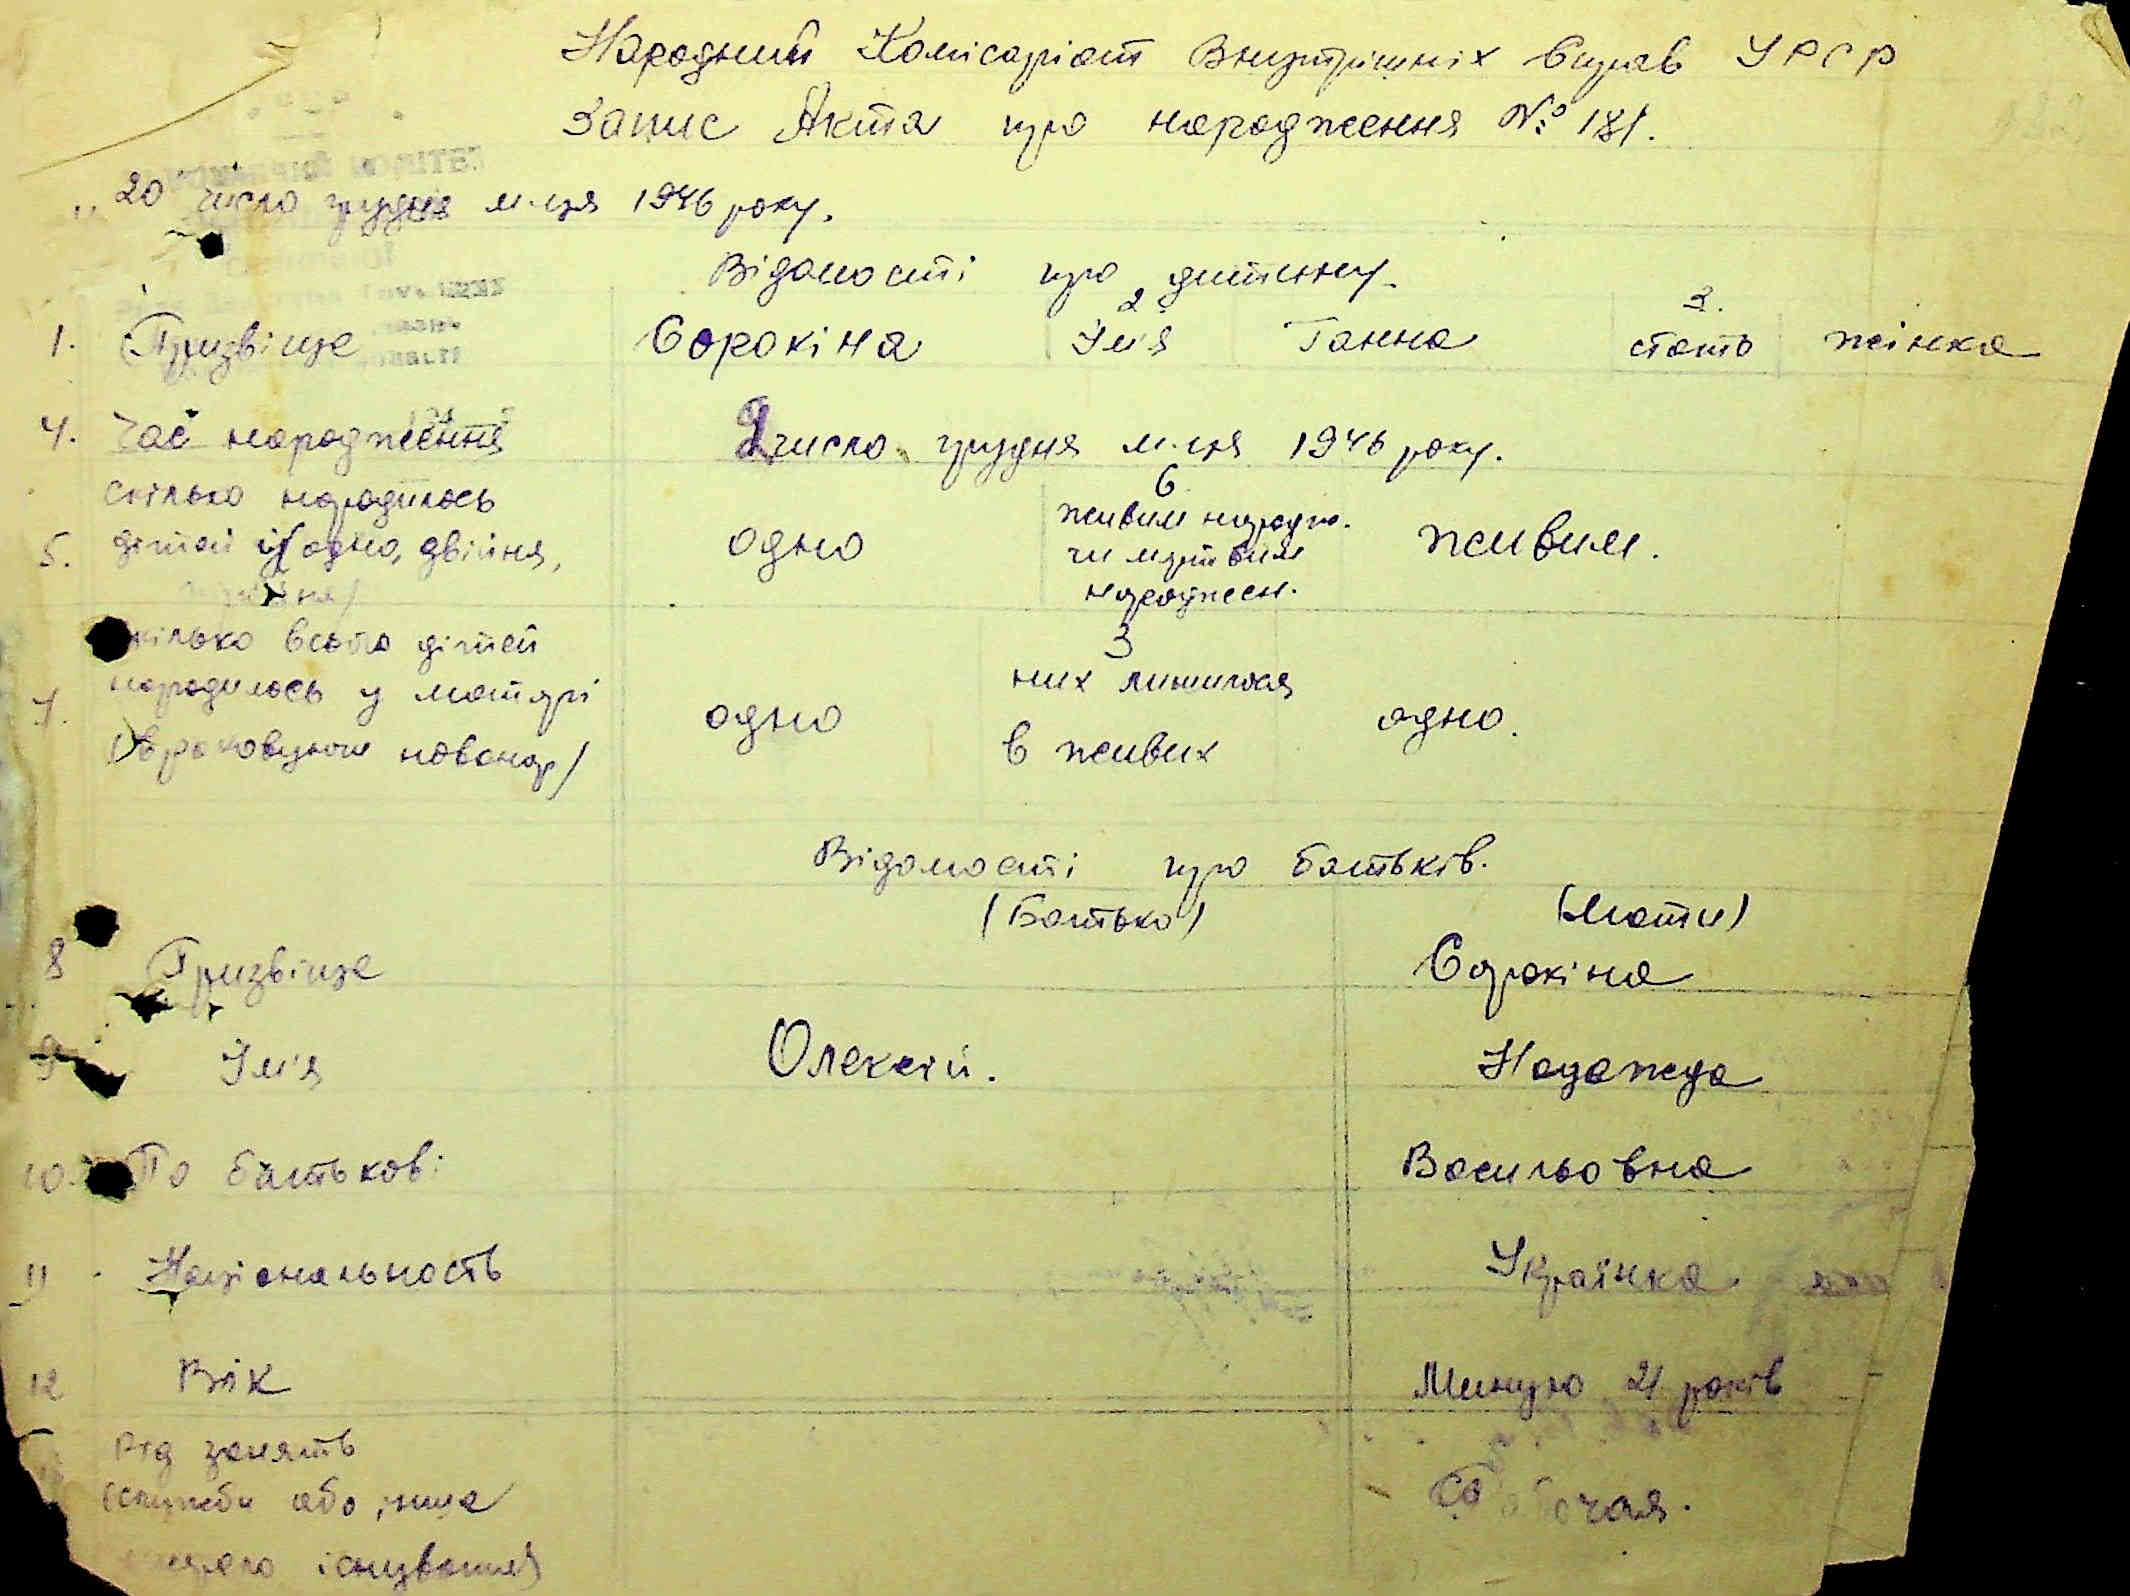 Народний Комісаріат Внутрішніх Справ УРСР
Запис Акта про народження № 181.
"20" число грудня м-ця 1946 року.
Відомості про дитину.
1. Прізвище Сорокіна 2 Ім'я Ганна 3. стать жінка
4. Час народження 2 число грудня м-ця 1946 року.
5. скілько народилось дітей (одно, двійня, одно 6 живим народж. чи мертвим народжен. живим.
7. скілько всього дітей народилось у матері (враховуючи новонар/ одно З них лишилося в живих одно.
Відомості про батьків.
(Батько) (Мати)
8 Прізвище Сорокіна
9 Ім'я Олексій. Надежда
10. По батькові Васильовна
11 Національность Українка
12 Вік Минуло 21 років
Рід занять Рабочая.
(служби або інше
джерело існування)